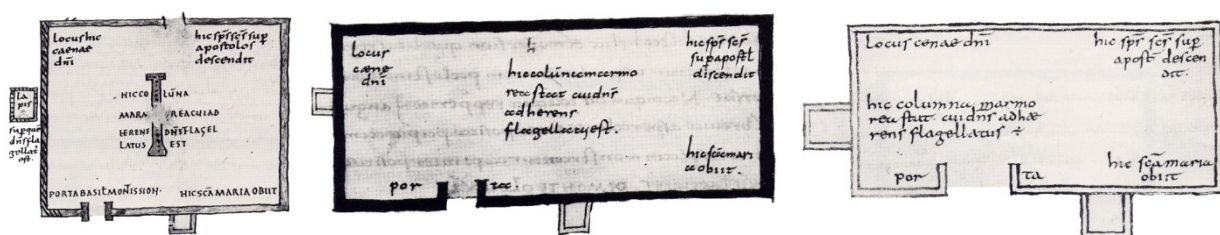 locus hic
caenae
dn̄i
hic sp̄s sc̄s sup
apostolos
descendit
HIC CO LŪNA
MARM REACUIAD
hERENS DN̄S FLAGEL
LATUS EST
la
pis
sup que
dn̄s fla
gellat
est.
PORTA BASIL MON SSION.
HIC SC̄A MARIA OBIIT
locus
caene
dn̄i
hic sp̄s sc̄s
sup apostl
discendit
hic colūnc marmo
rea stat cui dn̄s
adherens
flagellatus est.
hic sc̄e mari
a obiit.
por ta.
Locus cenae dn̄i
hic sp̄s sc̄s sup
apost descen
dit.
hic columna marmo
rea stat. cui dn̄s adhæ
rens flagellatus ÷
hic sc̄a maria
obiit
por ta